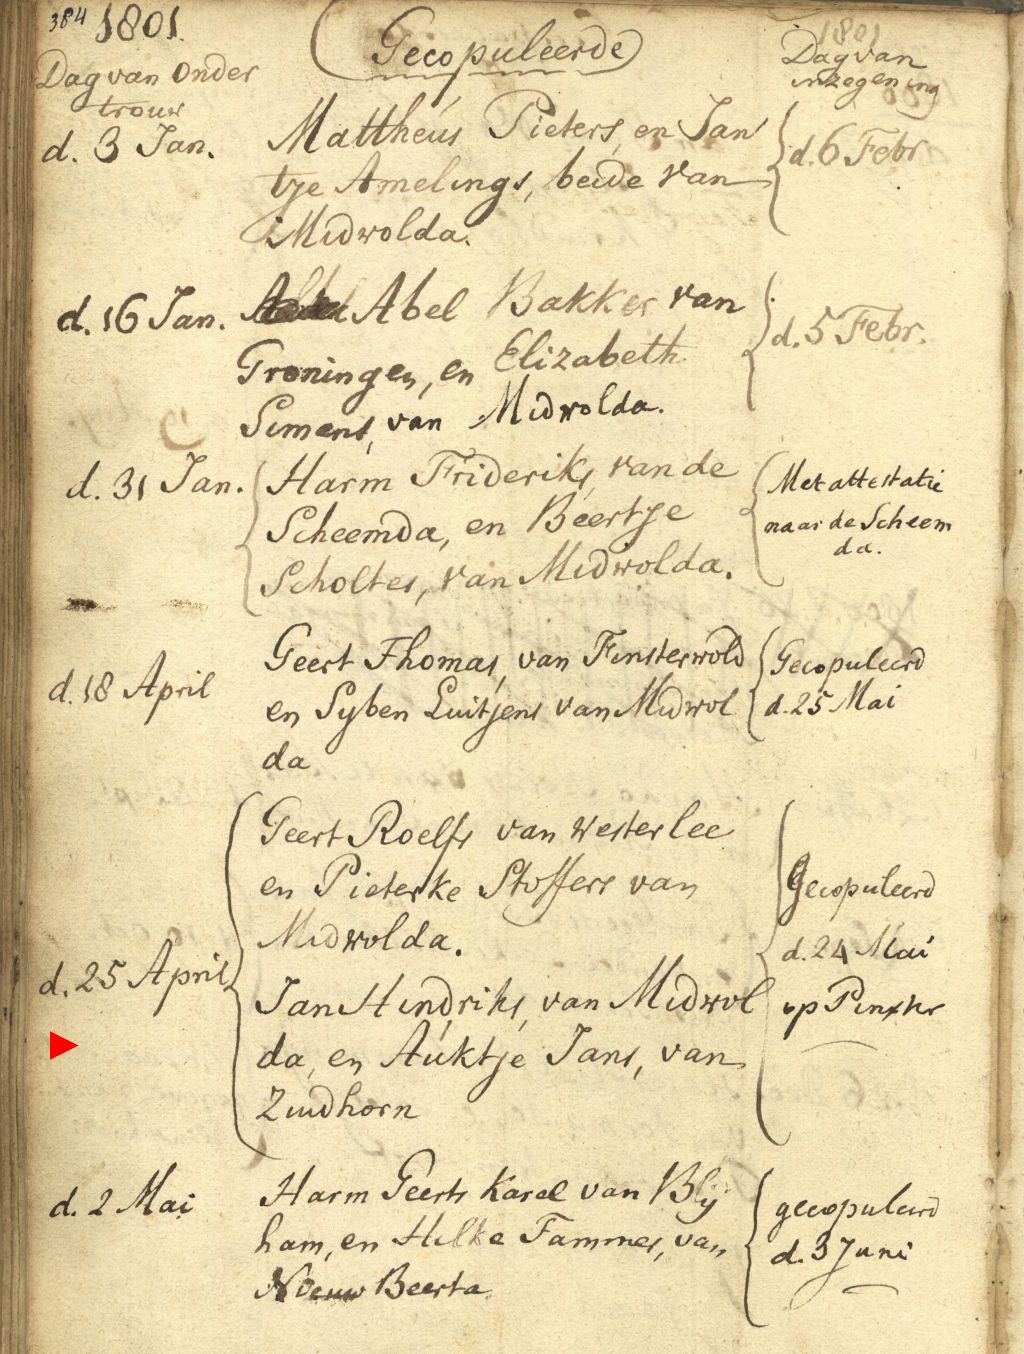 384 1801.
Gecopuleerde
1801
Dag van onder
trouw
Dag van
inzegening
d. 3 Jan.
Mattheus Pieters, en Jan
tje Amelings, beide van
Midwolda.
d. 6 Febr
d. 16 Jan.
Abel Bakker van
Groningen, en Elizabeth
Simens, van Midwolda.
d. 5 Febr.
d. 31 Jan.
Harm Frideriks, van de
Scheemda, en Beertje
Scholtes, van Midwolda.
Met attestatie
naar de Scheem
da.
d. 18 April
Geert Thomas, van Finsterwold
en Syben Luitjens van Midwol
da
Gecopuleerd
d. 25 Mai
d. 25 April
Geert Roelfs van Westerlee
en Pieterke Stoffers van
Midwolda.
Jan Hindriks, van Midwol
da, en Auktje Jans, van
Zuidhorn
Gecopuleerd
d. 24 Mai
op Pinxter
d. 2 Mai
Harm Geerts Karel van Blij
ham, en Hilke Tammes, van
Nieuw Beerta
gecopuleerd
d. 3 Juni